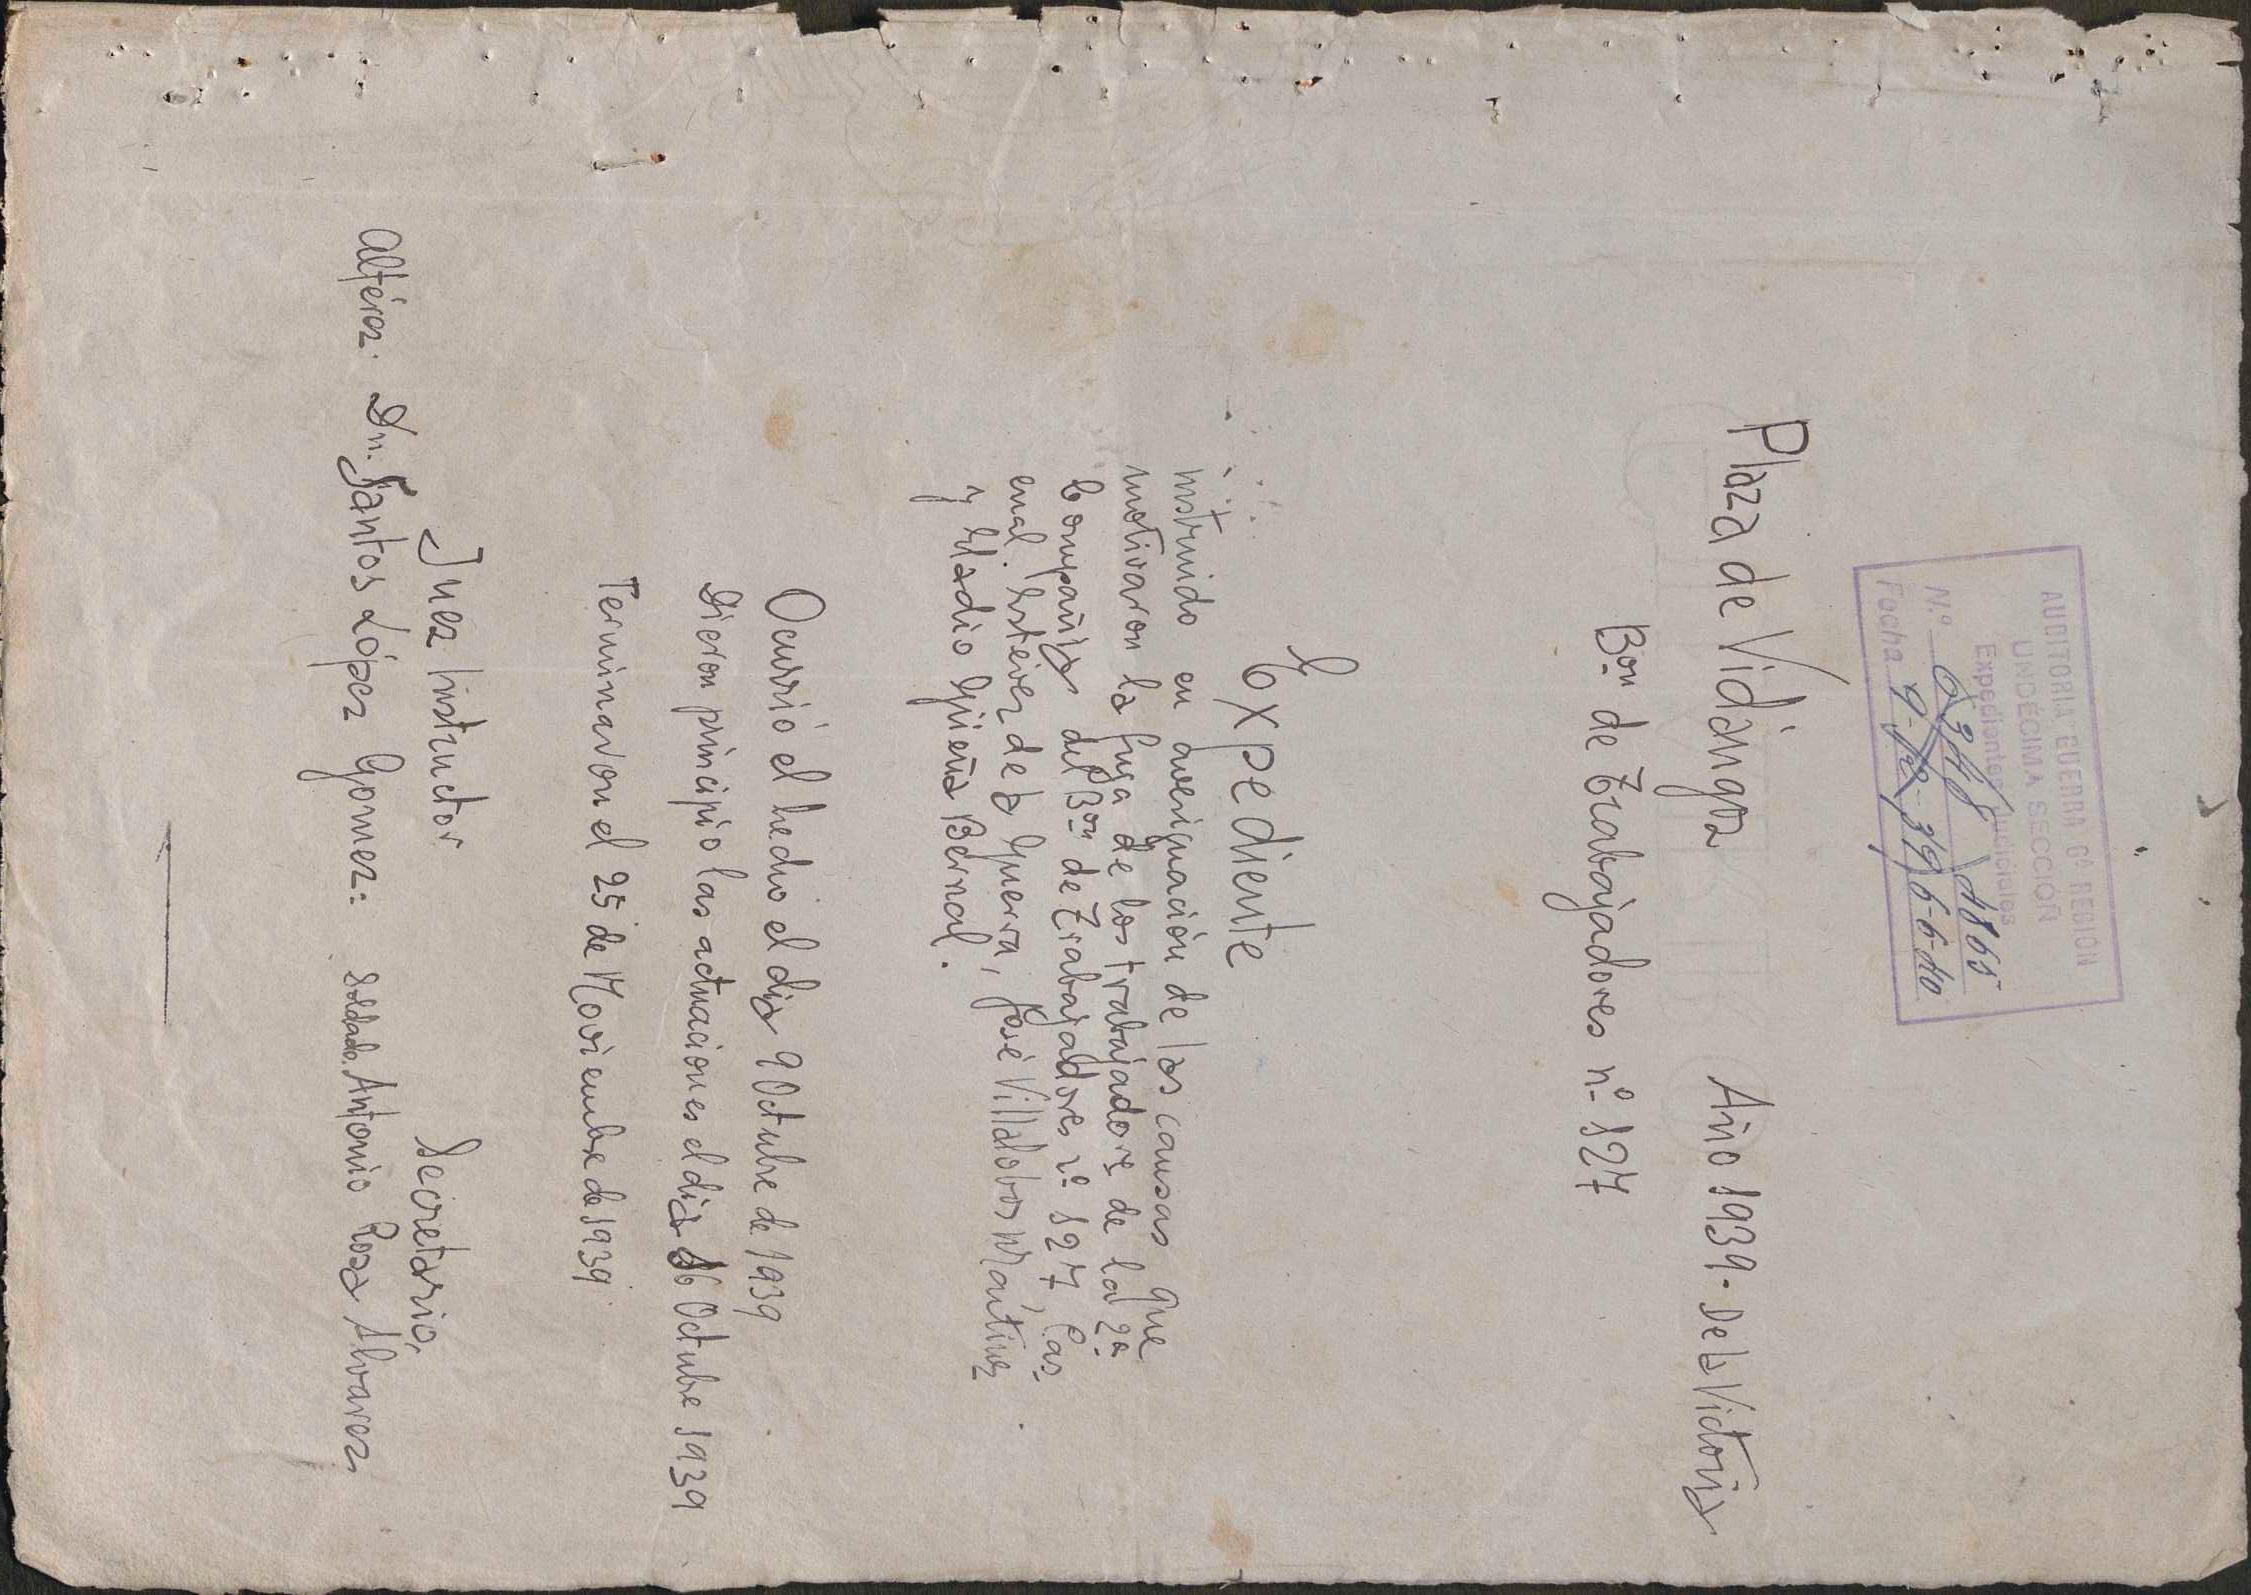 AUDITORIA GUERRA 6ª REGION
UNDECIMA SECCION
Expedientes Judiciales
N.º 1865
Fecha 6-6-40
Plaza de Vidángoz Año 1939- De la Victoria
Bon de Trabajadores nº 127
Expediente
instruido en averiguación de las causas que
motivaron la fuga de los trabajadores de la 2ª
Compañía del Bon de Trabajadores nº 127, Cas-
Estévez de la Guerra, José Villalobos Martínez
y Eladio Güeña Bernal.
Ocurrió el hecho el día 9 Octubre de 1939
Dieron principio las actuaciones el día 16 Octubre 1939
Terminaron el 25 de Noviembre de 1939
Juez Instructor Secretario,
Alférez Dn. Santos López Gomez: Soldado Antonio Rosa Alvarez